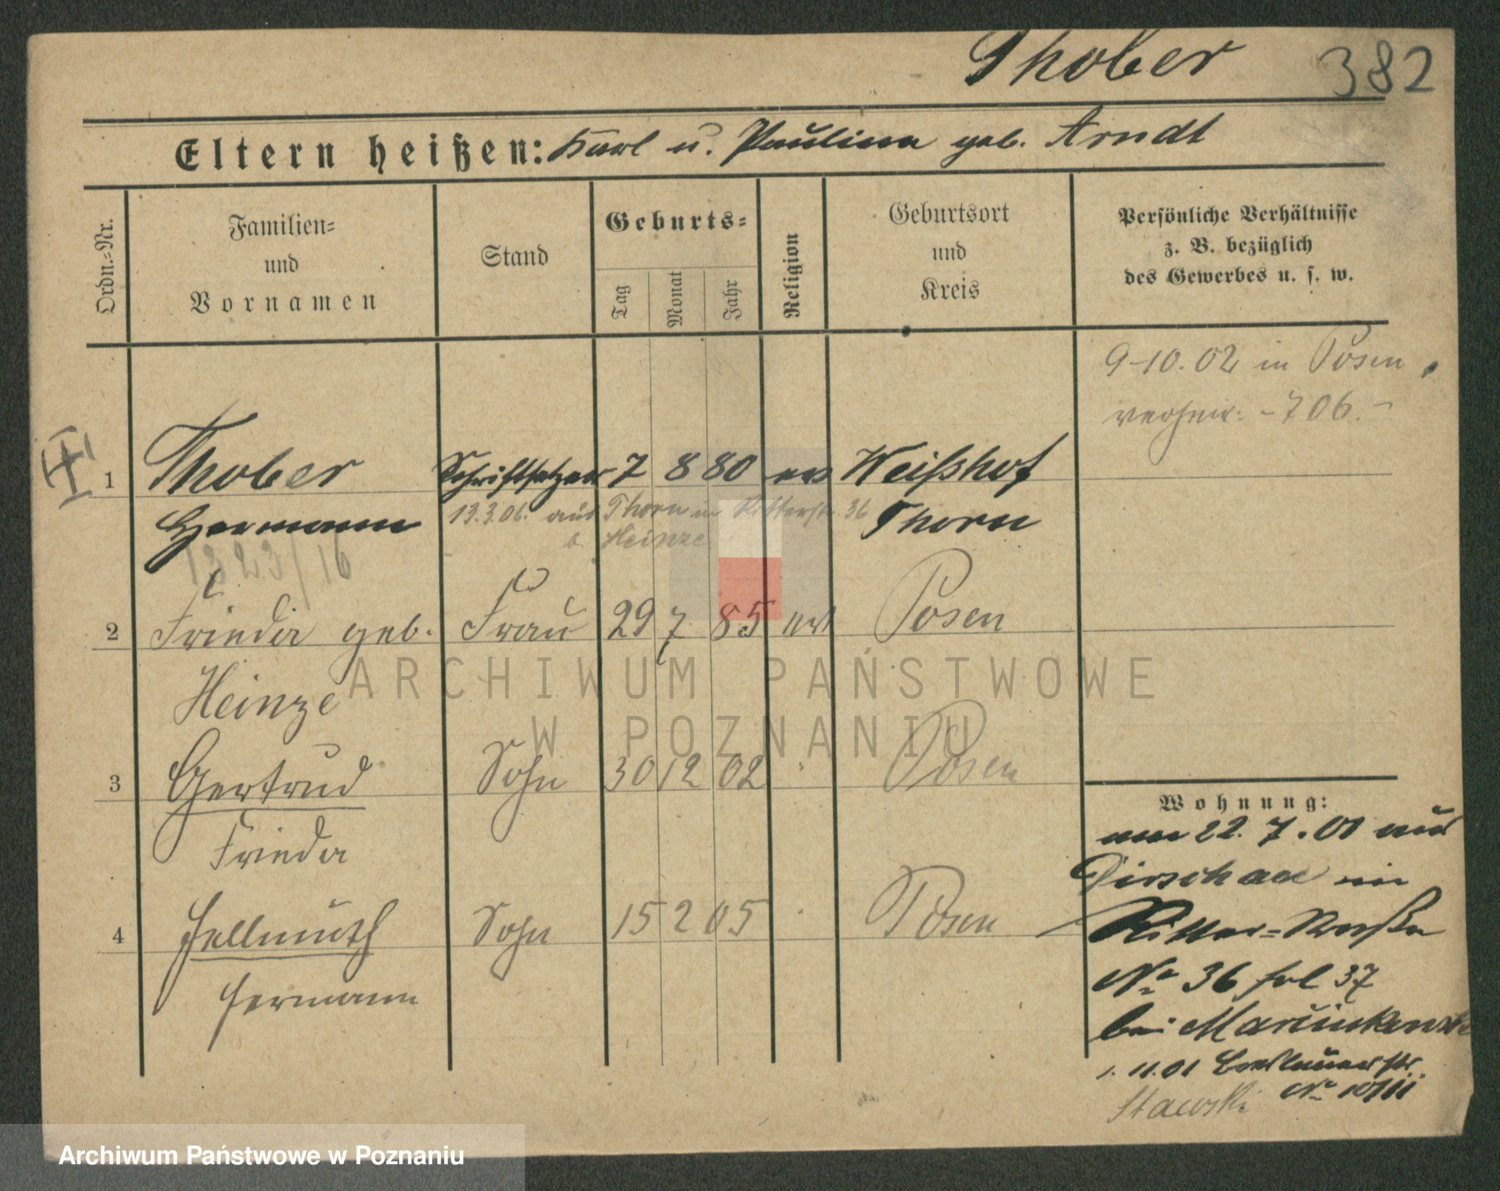 Thober 382
Eltern heißen: Karl u. Paulina geb. Arndt
Ordn.-Nr.
Familien-
und
Vornamen
Stand
Geburts-
Tag
Monat
Jahr
Religion
Geburtsort
und
Kreis
Persönliche Verhältnisse
z. B. bezüglich
des Gewerbes u. s. w.
9-10.02 in Posen
verheir. - 706.-
1 Thober Schriftsetzer 7 8 80 ev Weißhof
Hermann 13.3.06. aus Thorn in Ritterstr. 36 Thorn
b. Heinze
1323/16
2 Frieda geb. Frau 29 7 85 ev Posen
Heinze
3 Gertrud Sohn 30 12 02 Posen
Frieda
4 Hellmuth Sohn 15 2 05 Posen
Hermann
Wohnung:
am 22.7.01 aus
Dirschau in
Ritter-Straße
No 36 hol 37
bei
1.11.01 Breslauerstr.
Stawski No 10/III
ARCHIWUM PAŃSTWOWE
W POZNANIU
Archiwum Państwowe w Poznaniu